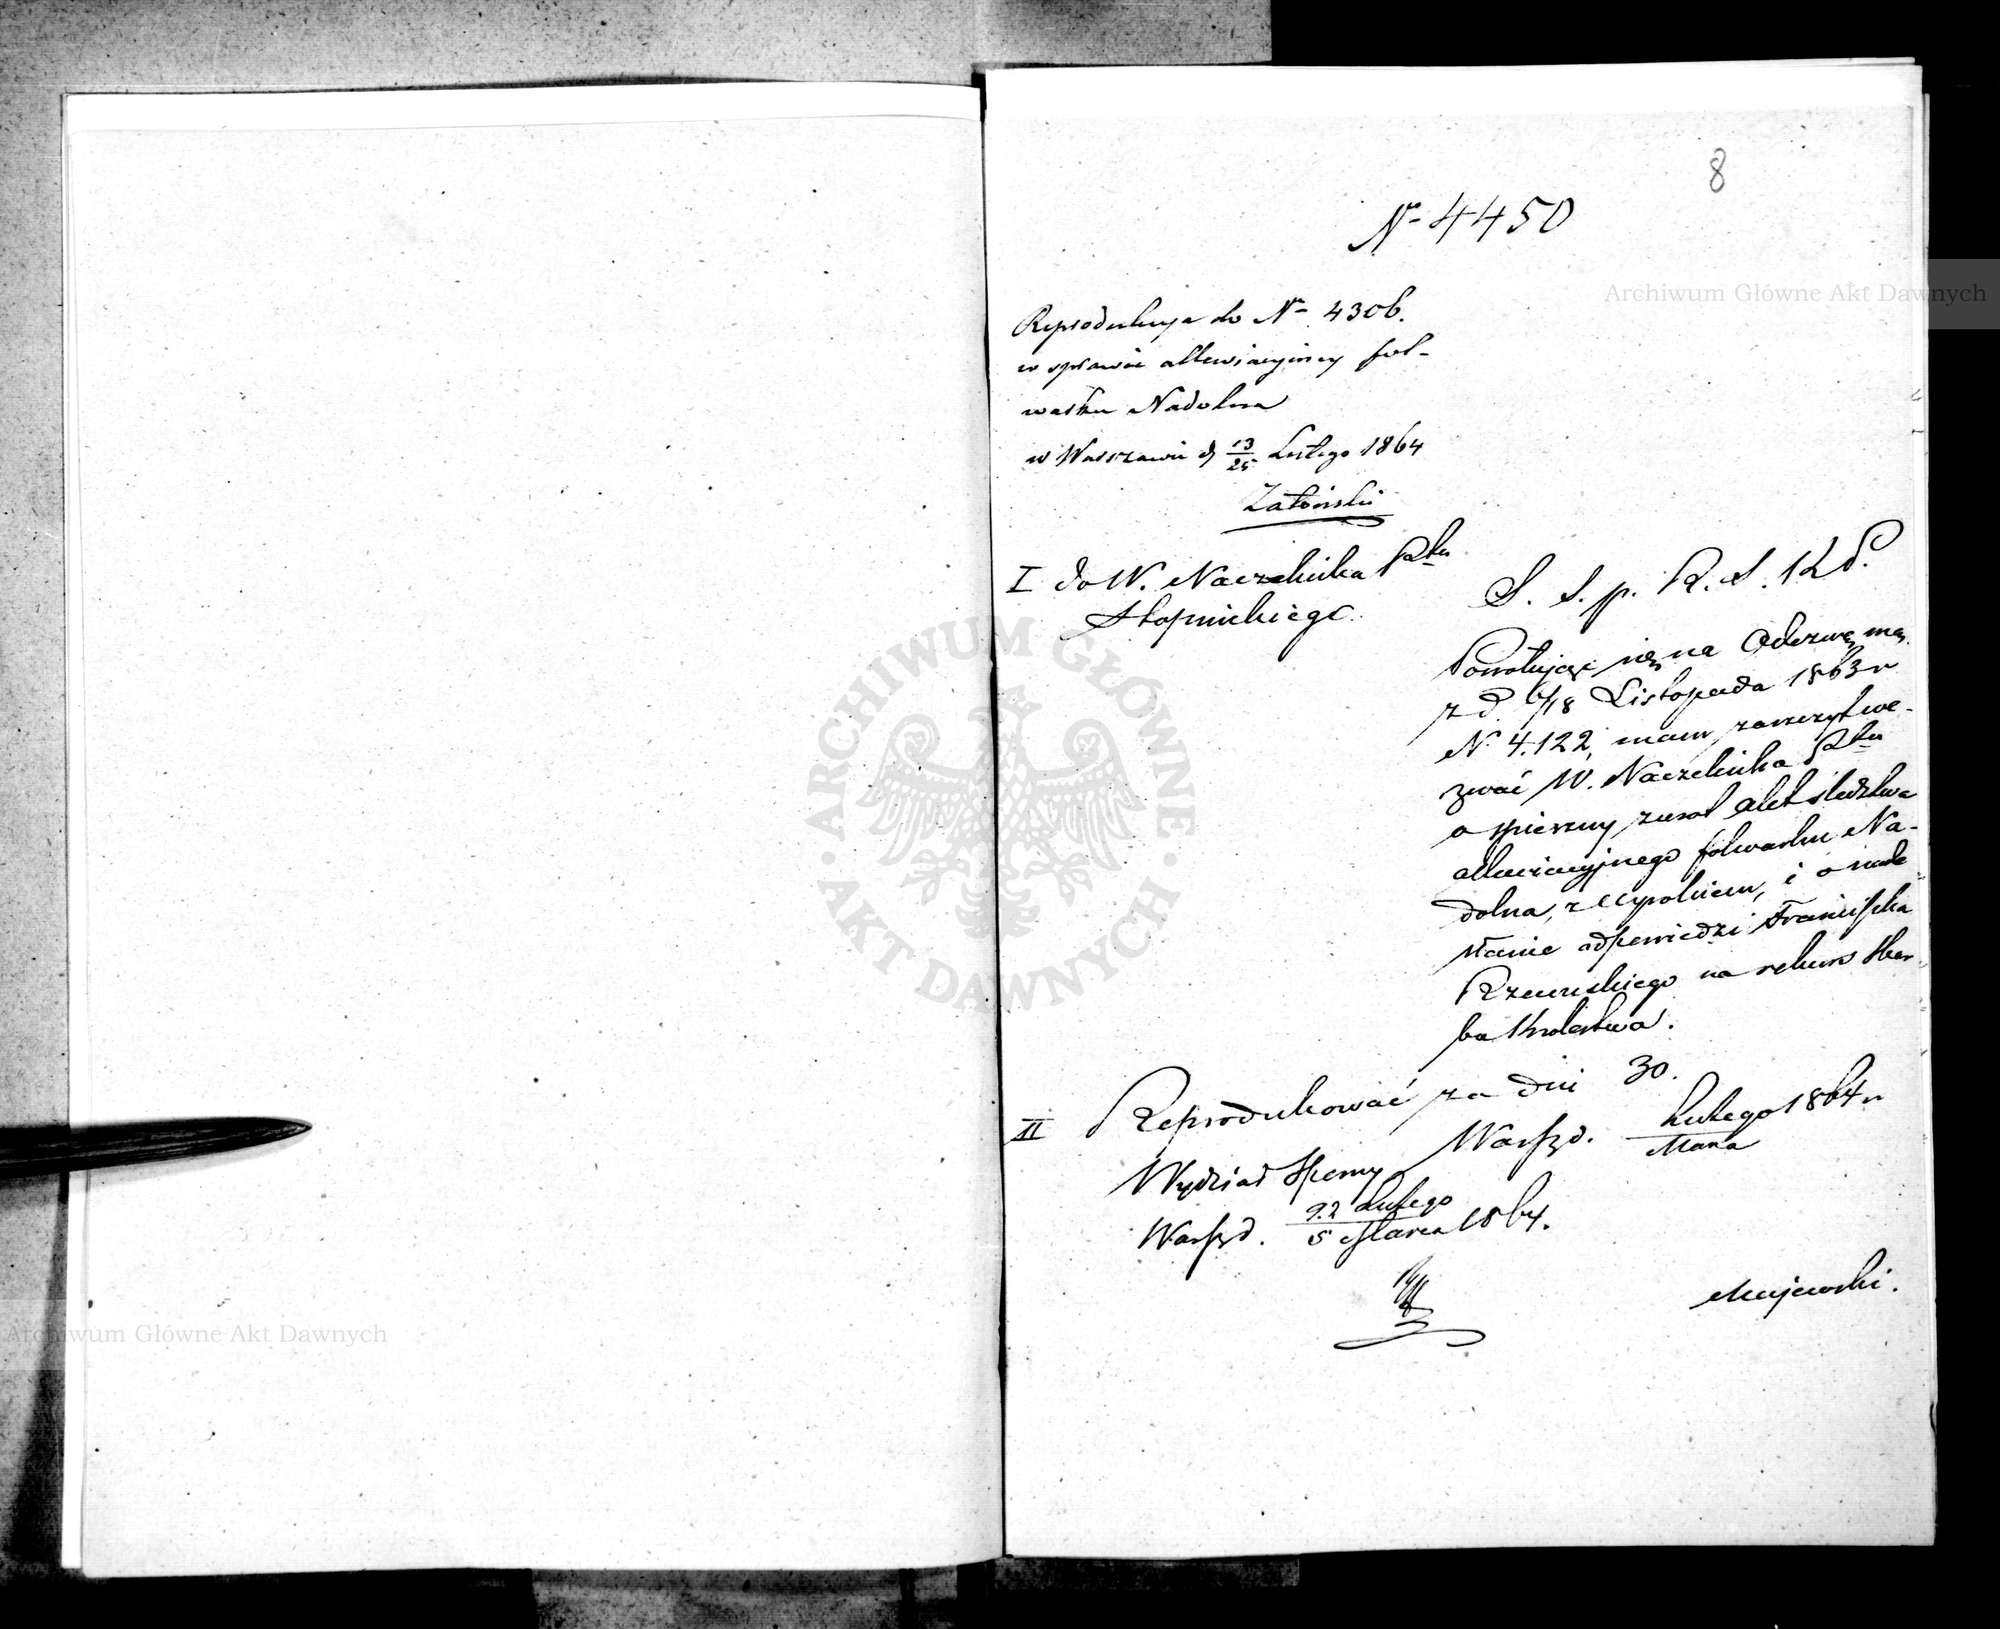 8
Nr 4450
Reprodukcja do Nr 4306.
w sprawie allewiacyjnej fol-
warku Nadolna
w Warszawie d 13/25 Lutego 1864
Zatórski
I do W. Naczelnika Ptu
Stopnickiego
S. S. p. R. S. K P.
Powołując się na Odezwę mą
z d. 6/18 Listopada 1863 r
N. 4.122, mam zaszczyt we-
zwać W. Naczelnika Ptu
o spieszny zwrot akt śledztwa
allewiacyjnego folwarku Na-
dolna, z wypełnieniem, i o nade
słanie odpowiedzi Franciszka
Rzewuskiego na rekurs Skar
bu Królestwa.
II Reprodukować za dni 30.
Warsz d. Lutego/Marca 1864 r
Wydział Sporny
Warsz d. 22 Lutego/5 Marca 1864.
Majewski.
Archiwum Główne Akt Dawnych
ARCHIWUM GŁÓWNE
· AKT DAWNYCH ·
Archiwum Główne Akt Dawnych